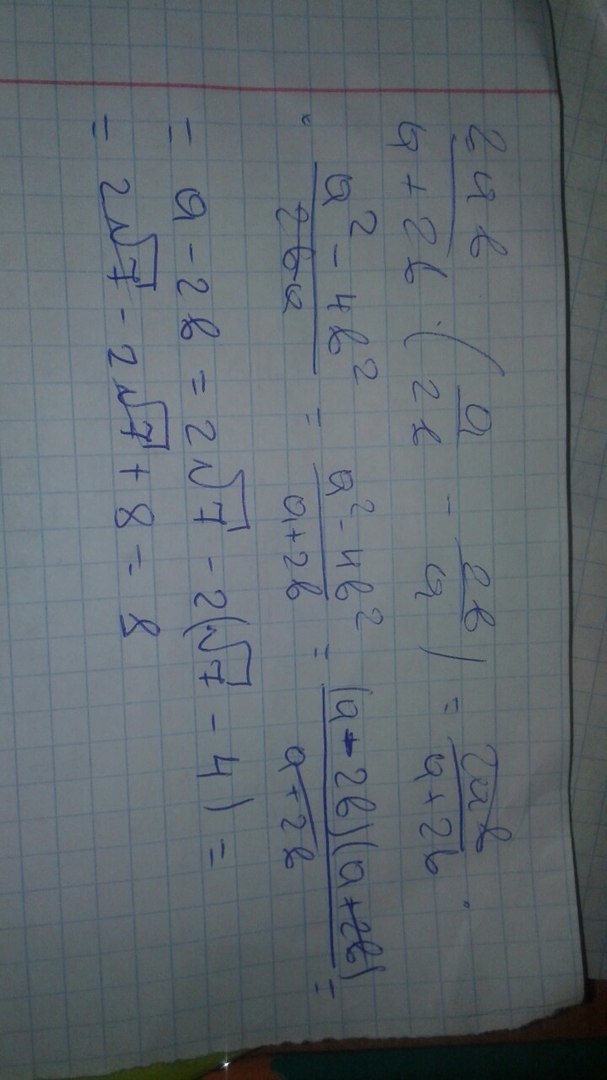 2ab/(a+2b) · (a/2b - 2b/a) = 2ab/(a+2b) ·
· (a² - 4b²)/2ba = (a² - 4b²)/(a+2b) = (a-2b)(a+2b)/(a+2b) =
= a - 2b = 2√7 - 2(√7 - 4) =
= 2√7 - 2√7 + 8 = 8